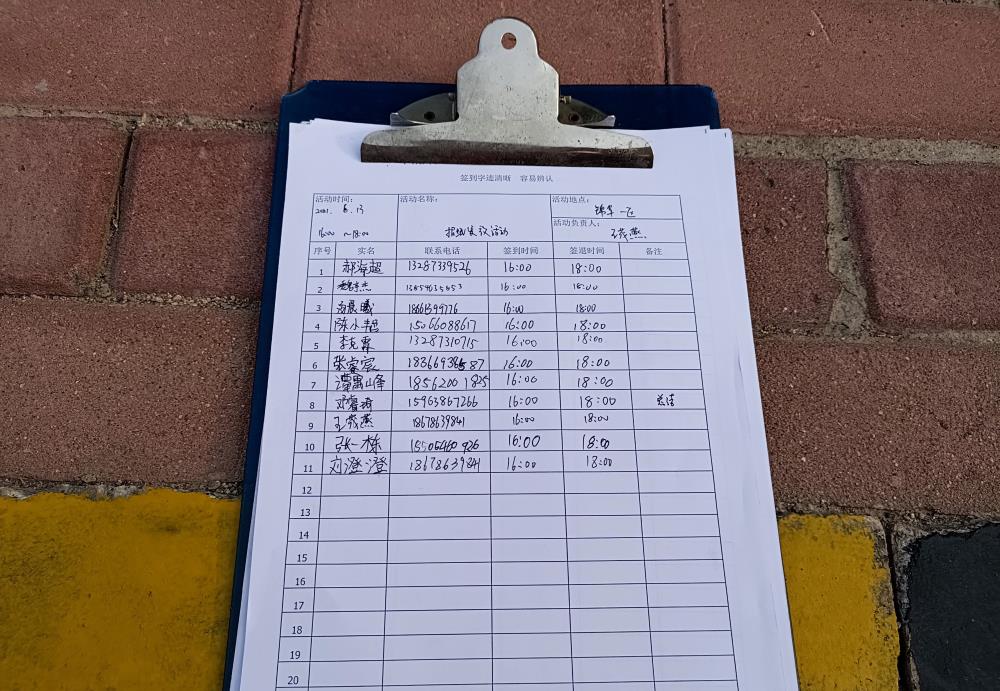 签到字迹清晰 容易辨认
活动时间： 活动名称： 活动地点：
2021. 6.13 锦华一区
16:00 ~18:00 活动 活动负责人： 王茂燕
序号 实名 联系电话 签到时间 签退时间 备注
1 郝海超 13287339526 16:00 18:00
2 16:00 18:00
3 18661399776 16:00 18:00
4 陈小 15066088617 16:00 18:00
5 李克霖 13287310715 16:00 18:00
6 张睿宸 16:00 18:00
7 谭富峰 18562001825 16:00 18:00
8 邓睿琦 15963867266 16:00 18:00
9 王茂燕 18678639841 16:00 18:00
10 张一栋 16:00 18:00
11 刘澄澄 18678639841 16:00 18:00
12
13
14
15
16
17
18
19
20